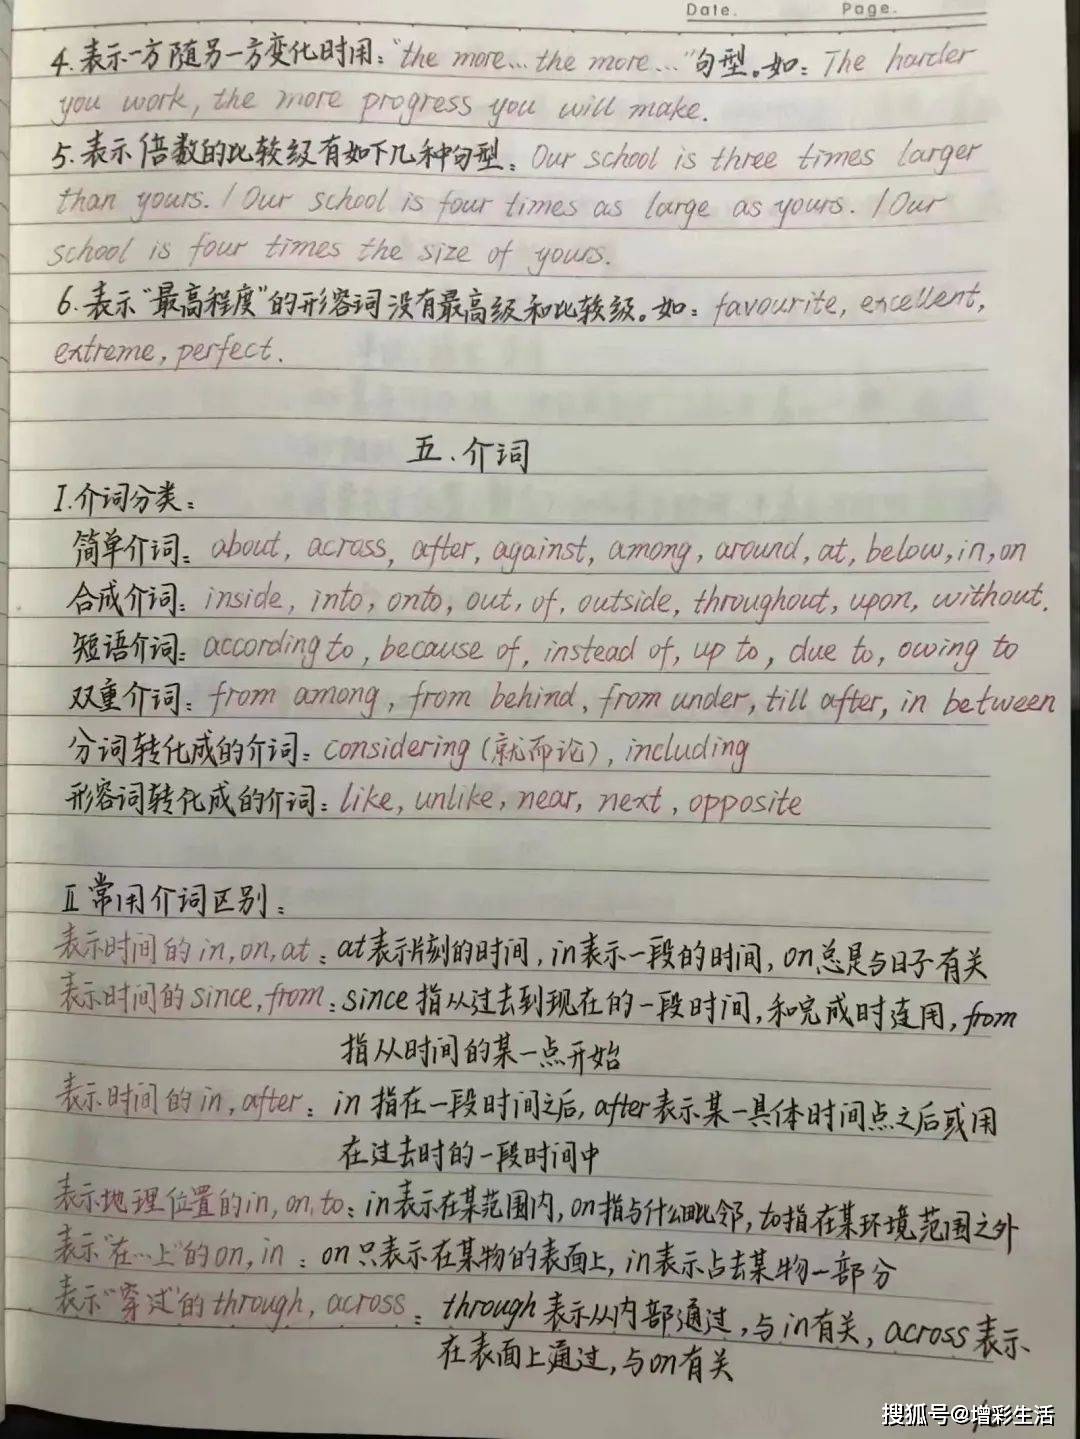 Date. Page.
4.表示一方随另一方变化时用："the more... the more..."句型。如：The harder
you work, the more progress you will make.
5.表示倍数的比较级有如下几种句型：Our school is three times larger
than yours. / Our school is four times as large as yours. / Our
school is four times the size of yours.
6.表示"最高程度"的形容词没有最高级和比较级。如：favourite, excellent,
extreme, perfect.
五.介词
I.介词分类：
简单介词：about, across, after, against, among, around, at, below, in, on
合成介词：inside, into, onto, out, of, outside, throughout, upon, without.
短语介词：according to, because of, instead of, up to, due to, owing to
双重介词：from among, from behind, from under, till after, in between
分词转化成的介词：considering(就而论), including
形容词转化成的介词：like, unlike, near, next, opposite
II常用介词区别：
表示时间的in, on, at：at表示片刻的时间，in表示一段的时间，on总是与日子有关
表示时间的since, from：since指从过去到现在的一段时间，和完成时连用，from
指从时间的某一点开始
表示时间的in, after：in指在一段时间之后，after表示某一具体时间点之后或用
在过去时的一段时间中
表示地理位置的in, on, to：in表示在某范围内，on指与什么毗邻，to指在某环境范围之外
表示"在…上"的on, in：on只表示在某物的表面上，in表示占去某物一部分
表示"穿过"的through, across：through表示从内部通过，与in有关，across表示
在表面上通过，与on有关
搜狐号@增彩生活